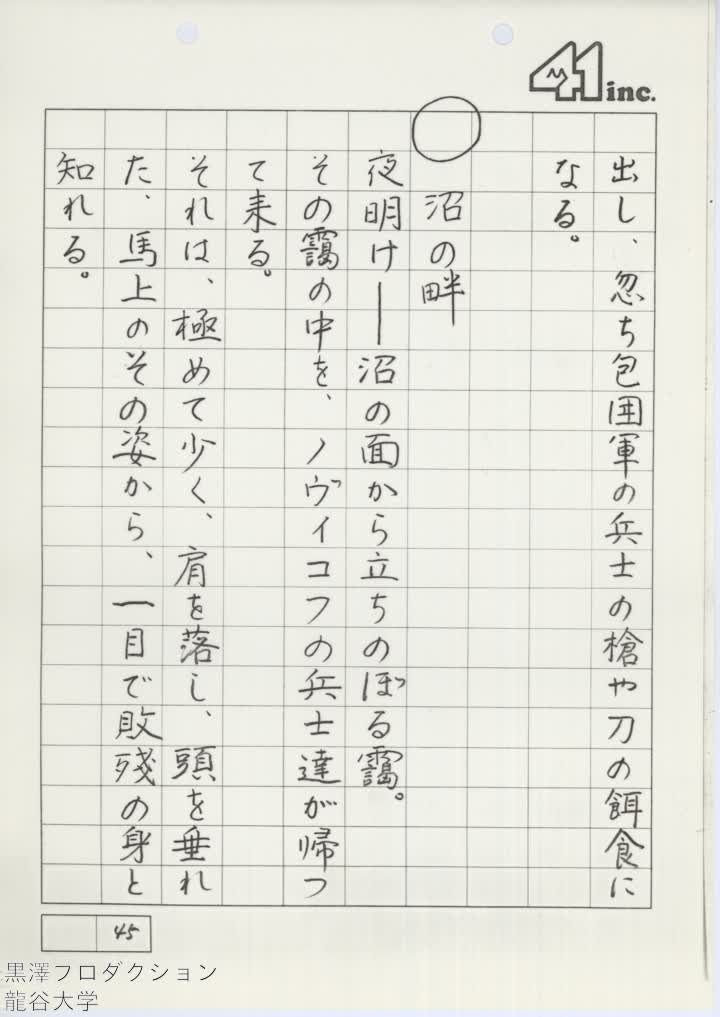 41 inc.
出し、忽ち包囲軍の兵士の槍や刀の餌食に
なる。
沼の畔
夜明け──沼の面から立ちのぼる靄。
その靄の中を、ノヴィコフの兵士達が帰つ
て来る。
それは、極めて少く、肩を落し、頭を垂れ
た、馬上のその姿から、一目で敗残の身と
知れる。
45
黒澤プロダクション
龍谷大学